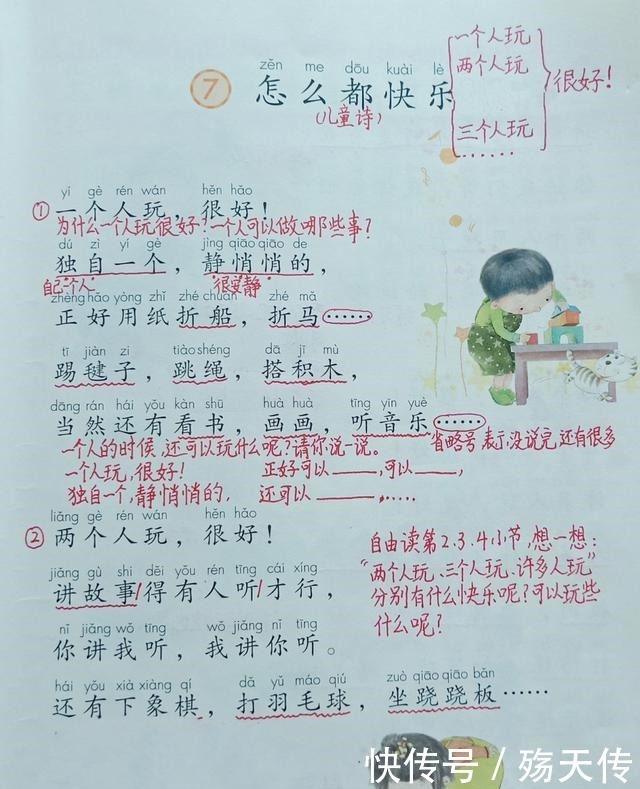 zěn me dōu kuài lè
7 怎么都快乐
(儿童诗)
一个人玩
两个人玩
三个人玩
……
很好!
yí gè rén wán hěn hǎo
①一个人玩,很好!
为什么一个人玩很好?一个人可以做哪些事?
dú zì yí gè jìng qiāo qiāo de
独自一个,静悄悄的,
自己一个人 很安静
zhèng hǎo yòng zhǐ zhé chuán zhé mǎ
正好用纸折船,折马……
tī jiàn zi tiào shéng dā jī mù
踢毽子,跳绳,搭积木,
dāng rán hái yǒu kàn shū huà huà tīng yīn yuè
当然还有看书,画画,听音乐……
省略号表示没说完,还有很多
一个人的时候,还可以玩什么呢?请你说一说。
一个人玩,很好! 正好可以____,可以____,
独自一个,静悄悄的, 还可以____,……
liǎng gè rén wán hěn hǎo
②两个人玩,很好!
jiǎng gù shi děi yǒu rén tīng cái xíng
讲故事/得有人听/才行,
nǐ jiǎng wǒ tīng wǒ jiǎng nǐ tīng
你讲我听,我讲你听。
hái yǒu xià xiàng qí dǎ yǔ máo qiú zuò qiāo qiāo bǎn
还有下象棋,打羽毛球,坐跷跷板……
自由读第2.3.4小节,想一想:
"两个人玩、三个人玩、许多人玩"
分别有什么快乐呢?可以玩些
什么呢?
快传号/殇天传